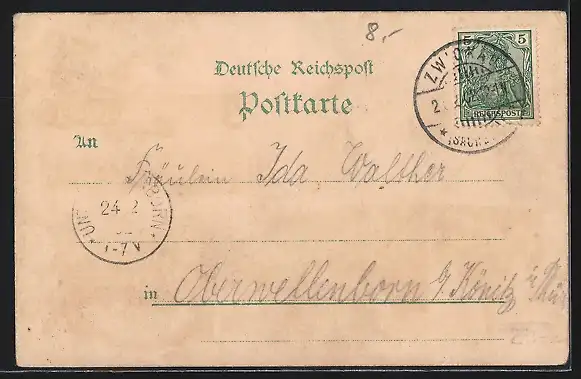 8.-
5
REICHSPOST
ZWICKAU
(SACHS
Deutsche Reichspost
Postkarte
An
Fräulein Ida Walther
24 2
7-7V
in Oberwellenborn b/ Könitz i/ Thür